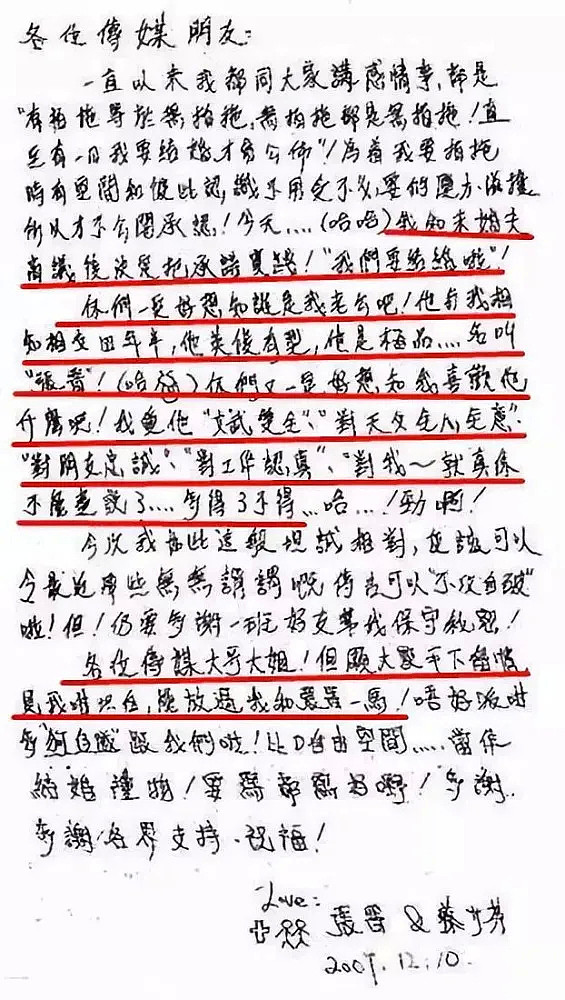 各位傳媒朋友：
一直以來我都同大家講感情事，都是
"有拍拖等於無拍拖，無拍拖都是無拍拖！直
至有一日我要結婚才會公佈"！為着我要拍拖
時有空間和彼此認識不用受不必要的壓力滋擾
所以才不公開承認！今天....(哈哈)我和未婚夫
商議後決定把承諾實踐！"我們要結婚啦"！
你們一定好想知誰是我老公吧！他與我相
知相交四年半，他英俊有型，他是極品....名叫
"張晉"！(哈哈)你們又一定好想知我喜歡他
什麼呢！我覺他"文武雙全"、"對天父生人生意"、
"對朋友忠誠"、"對工作認真"、"對我～就真係
不能盡說了....多得3不得...哈...！勁啊！
今次我在此這般坦誠相對，應該可以
令最近某些無無謂謂嘅傳言可以"不攻自破"
啦！但！仍要多謝一班好友幫我保守秘密！
各位傳媒大哥大姐！但願大家手下留情
見我咁坦白，能放過我和張晉一馬！唔好派咁
多"狗仔隊"跟我倆啦！比D自由空間.....當作
結婚禮物！要寫都寫好嘢！多謝..
多謝各界支持、祝福！
Love:
張晉 & 蔡少芬
2007.12.10.